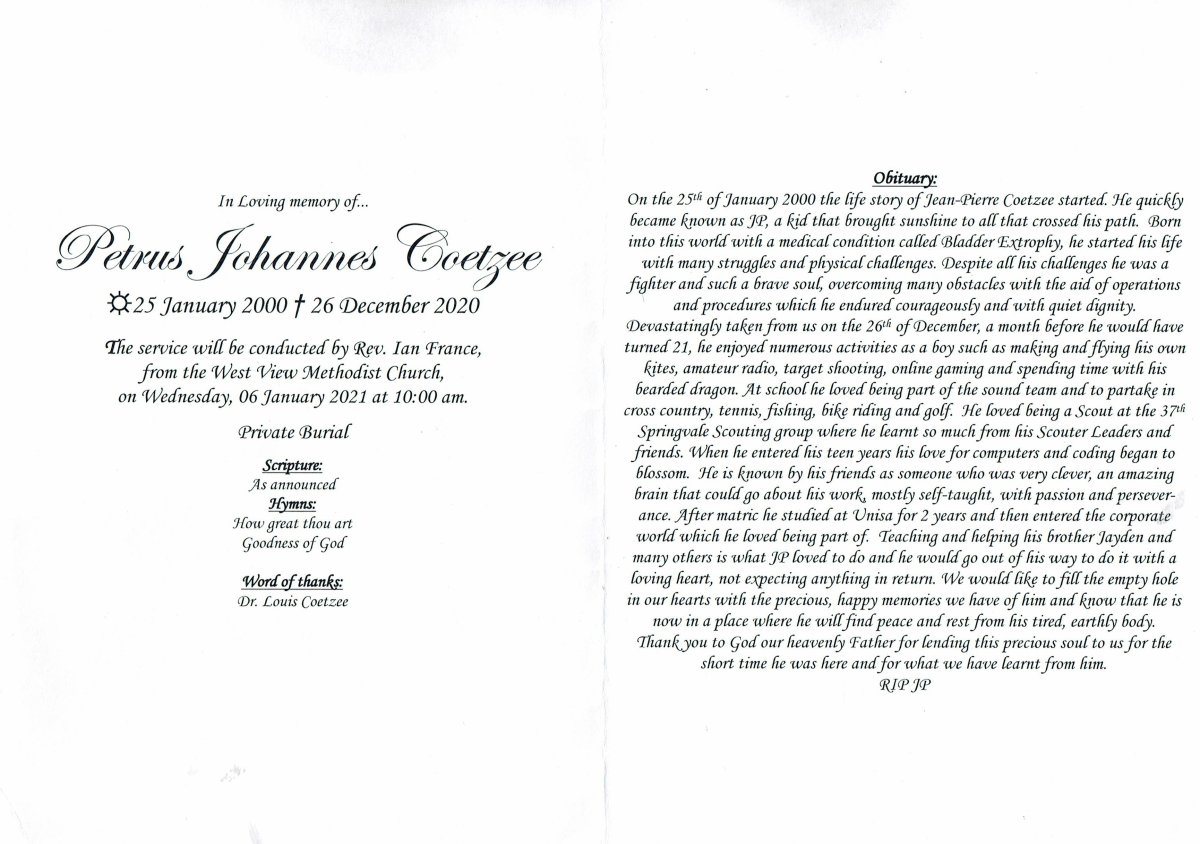 In Loving memory of...
Petrus Johannes Coetzee
☼25 January 2000 † 26 December 2020
The service will be conducted by Rev. Ian France,
from the West View Methodist Church,
on Wednesday, 06 January 2021 at 10:00 am.
Private Burial
Scripture:
As announced
Hymns:
How great thou art
Goodness of God
Word of thanks:
Dr. Louis Coetzee
Obituary:
On the 25th of January 2000 the life story of Jean-Pierre Coetzee started. He quickly
became known as JP, a kid that brought sunshine to all that crossed his path. Born
into this world with a medical condition called Bladder Extrophy, he started his life
with many struggles and physical challenges. Despite all his challenges he was a
fighter and such a brave soul, overcoming many obstacles with the aid of operations
and procedures which he endured courageously and with quiet dignity.
Devastatingly taken from us on the 26th of December, a month before he would have
turned 21, he enjoyed numerous activities as a boy such as making and flying his own
kites, amateur radio, target shooting, online gaming and spending time with his
bearded dragon. At school he loved being part of the sound team and to partake in
cross country, tennis, fishing, bike riding and golf. He loved being a Scout at the 37th
Springvale Scouting group where he learnt so much from his Scouter Leaders and
friends. When he entered his teen years his love for computers and coding began to
blossom. He is known by his friends as someone who was very clever, an amazing
brain that could go about his work, mostly self-taught, with passion and persever-
ance. After matric he studied at Unisa for 2 years and then entered the corporate
world which he loved being part of. Teaching and helping his brother Jayden and
many others is what JP loved to do and he would go out of his way to do it with a
loving heart, not expecting anything in return. We would like to fill the empty hole
in our hearts with the precious, happy memories we have of him and know that he is
now in a place where he will find peace and rest from his tired, earthly body.
Thank you to God our heavenly Father for lending this precious soul to us for the
short time he was here and for what we have learnt from him.
RIP JP